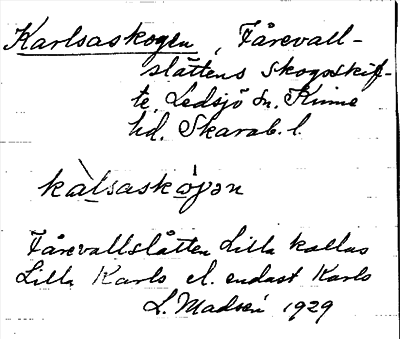 Karlsaskogen, Fårevall-
slättens skogsskif-
te, Ledsjö sn. Kinne
hd. Skarab. l.
kàlsaskọ́gən
Fårevallslätten Lilla kallas
Lilla Karls el. endast Karls
L. Madsén 1929